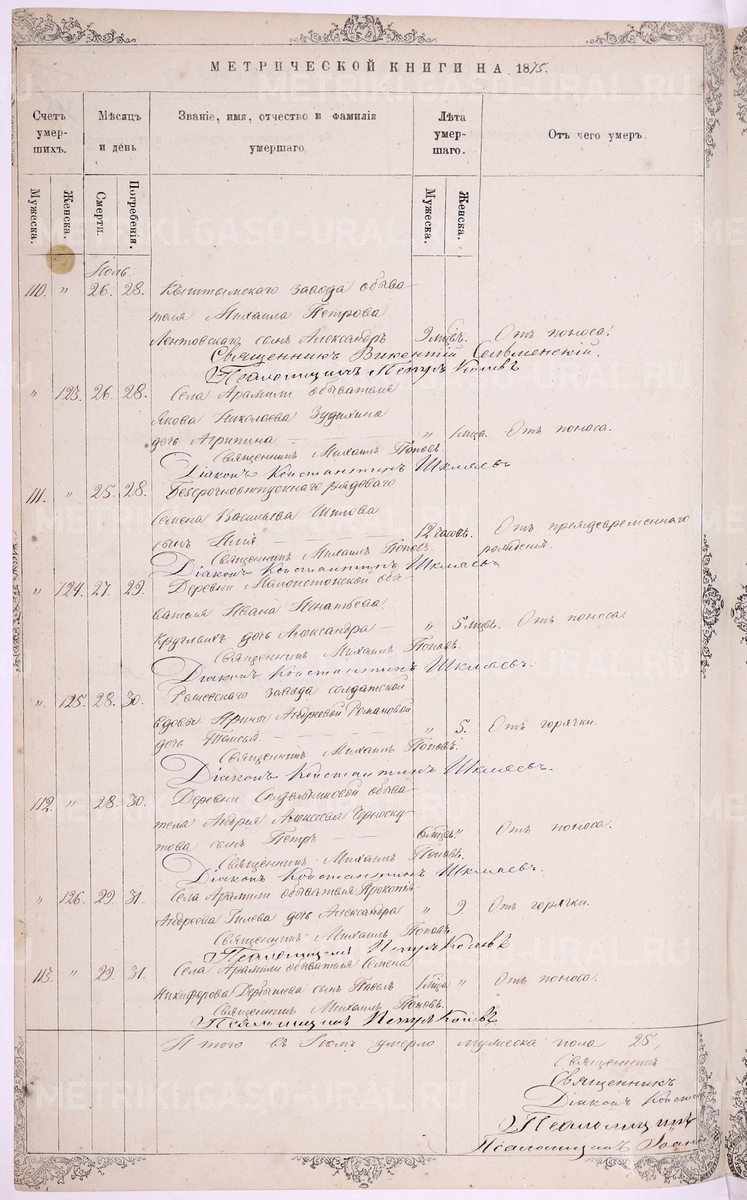 МЕТРИЧЕСКОЙ КНИГИ НА 1875.
Счетъ умер-шихъ. Мѣсяцъ и день Званіе, имя, отчество и фамилія умершаго. Лѣта умер-шаго. Отъ чего умеръ.
Мужеска. Женска. Смерти. Погребенія. Мужеска. Женска.
Іюль.
110. " 26. 28. Кыштымскаго завода обыва-
теля Михаила Петрова
сынъ Александръ 9 мѣс. Отъ поноса.
Священникъ Викентій
Псаломщикъ Петръ
" 123. 26. 28. Села Арамили обывателя
Якова Николаева Зудихина
дочь Агрипина " 1 мца. Отъ поноса.
Священникъ Михаилъ Поповъ.
Діаконъ Константинъ Шкляевъ
111. " 25. 28. Безсрочноотпускнаго рядоваго
Семена Васильева Шилова
сынъ Илія 12 часовъ. Отъ преждевременнаго
рожденія.
Священникъ Михаилъ Поповъ.
Діаконъ Константинъ Шкляевъ
" 124. 27. 29. Деревни Малоистокской обы-
вателя Ивана Игнатьева
Круглыхъ дочь Александра " 5 мцев. Отъ поноса.
Священникъ Михаилъ Поповъ.
Діаконъ Константинъ Шкляевъ.
" 125. 28. 30. завода солдатской
вдовы Ирины Андреевой Романовой
дочь Таисья " 5. Отъ горячки.
Священникъ Михаилъ Поповъ.
Діаконъ Константинъ Шкляевъ.
112. " 28. 30. Деревни обыва-
теля Андрея Алексеева Черноску-
това сынъ Петръ 6 мцев. " Отъ поноса.
Священникъ Михаилъ Поповъ.
Діаконъ Константинъ Шкляевъ.
" 126. 29. 31. Села Арамили обывателя Прокопія
Андреева Гилева дочь Александра " 9. Отъ горячки.
Священникъ Михаилъ Поповъ.
Псаломщикъ Петръ
113. " 29. 31. Села Арамили обывателя Семена
Никифорова Дербышева сынъ Павелъ 1 мца " Отъ поноса.
Священникъ Михаилъ Поповъ.
Псаломщикъ Петръ
Итого въ Іюлѣ умерло мужеска пола 25,
Священникъ
Священникъ
Діаконъ
Псаломщикъ
Псаломщикъ
METRIKI.GASO-URAL.RU